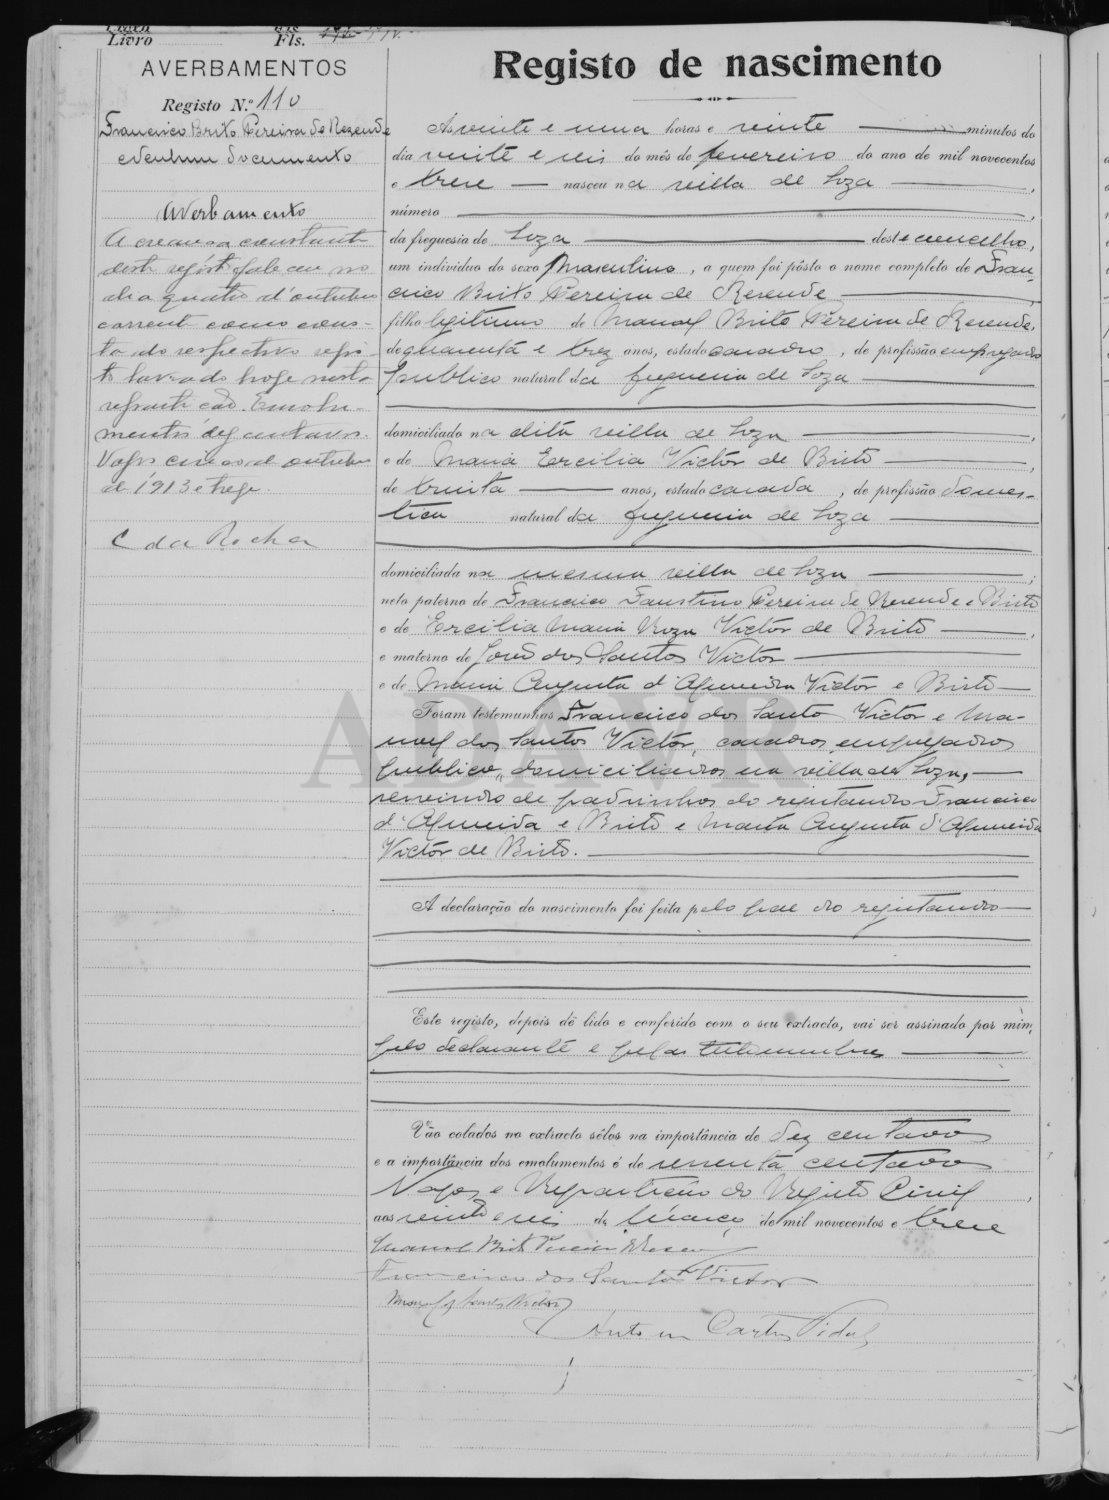 Livro Fls.
AVERBAMENTOS
Registo N.º 110
Francisco Brito Pereira de Rezende
Nenhum documento
Averbamento
A creança constante
deste registo faleceu no
dia quatro d'outubro
corrente como cons-
ta do respectivo regis-
to lavrado hoje nesta
repartição. Emolu-
mentos dez centavos.
Vagos cinco d'outubro
de 1913 e treze
C da Rocha
Registo de nascimento
Ás vinte e uma horas e vinte minutos do
dia vinte e seis do mês de fevereiro do ano de mil novecentos
e treze — nasceu na villa de Soza ,
número ,
da freguesia de Soza deste concelho,
um individuo do sexo Masculino, a quem foi pôsto o nome completo de Fran-
cisco Brito Pereira de Resende ,
filho legitimo de Manoel Brito Pereira de Resende,
de quarenta e trez anos, estado casado, de profissão empregado
publico natural da freguesia de Soza
domiciliado na dita villa de Soza ,
e de Maria Ercilia Victór de Brito ,
de trinta anos, estado casada, de profissão domes-
tica natural da freguesia de Soza
domiciliada na mesma villa de Soza ;
neto paterno de Francisco Faustino Pereira de Resende e Brito
e de Ercilia Maria Roza Victór de Brito ,
e materno de José dos Santos Victor
e de Maria Augusta d'Almeida Victór e Brito
Foram testemunhas Francisco dos Santos Victor e Ma-
noel dos Santos Victór, casados, empregados
publicos, domiciliados na villa de Soza,
servindo de padrinhos do registando Francisco
d'Almeida e Brito e Maria Augusta d'Almeida
Victór de Brito.
A declaração do nascimento foi feita pelo pae do registando
Este registo, depois de lido e conferido com o seu extracto, vai ser assinado por mim,
pelo declarante e pelas testemunhas
Vão colados no extracto sêlos na importância de dez centavos
e a importância dos emolumentos é de sessenta centavos
Vagos e Repartição do Registo Civil ,
aos vinte e seis de Março de mil novecentos e treze
Manoel Brito Pereira Resende
Francisco dos Santos Victor
Manoel dos Santos Victor
Antonio Carlos Vidal
ADAVR